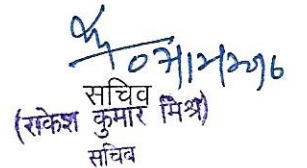 सचिव
(राकेश कुमार मिश्र)
सचिव